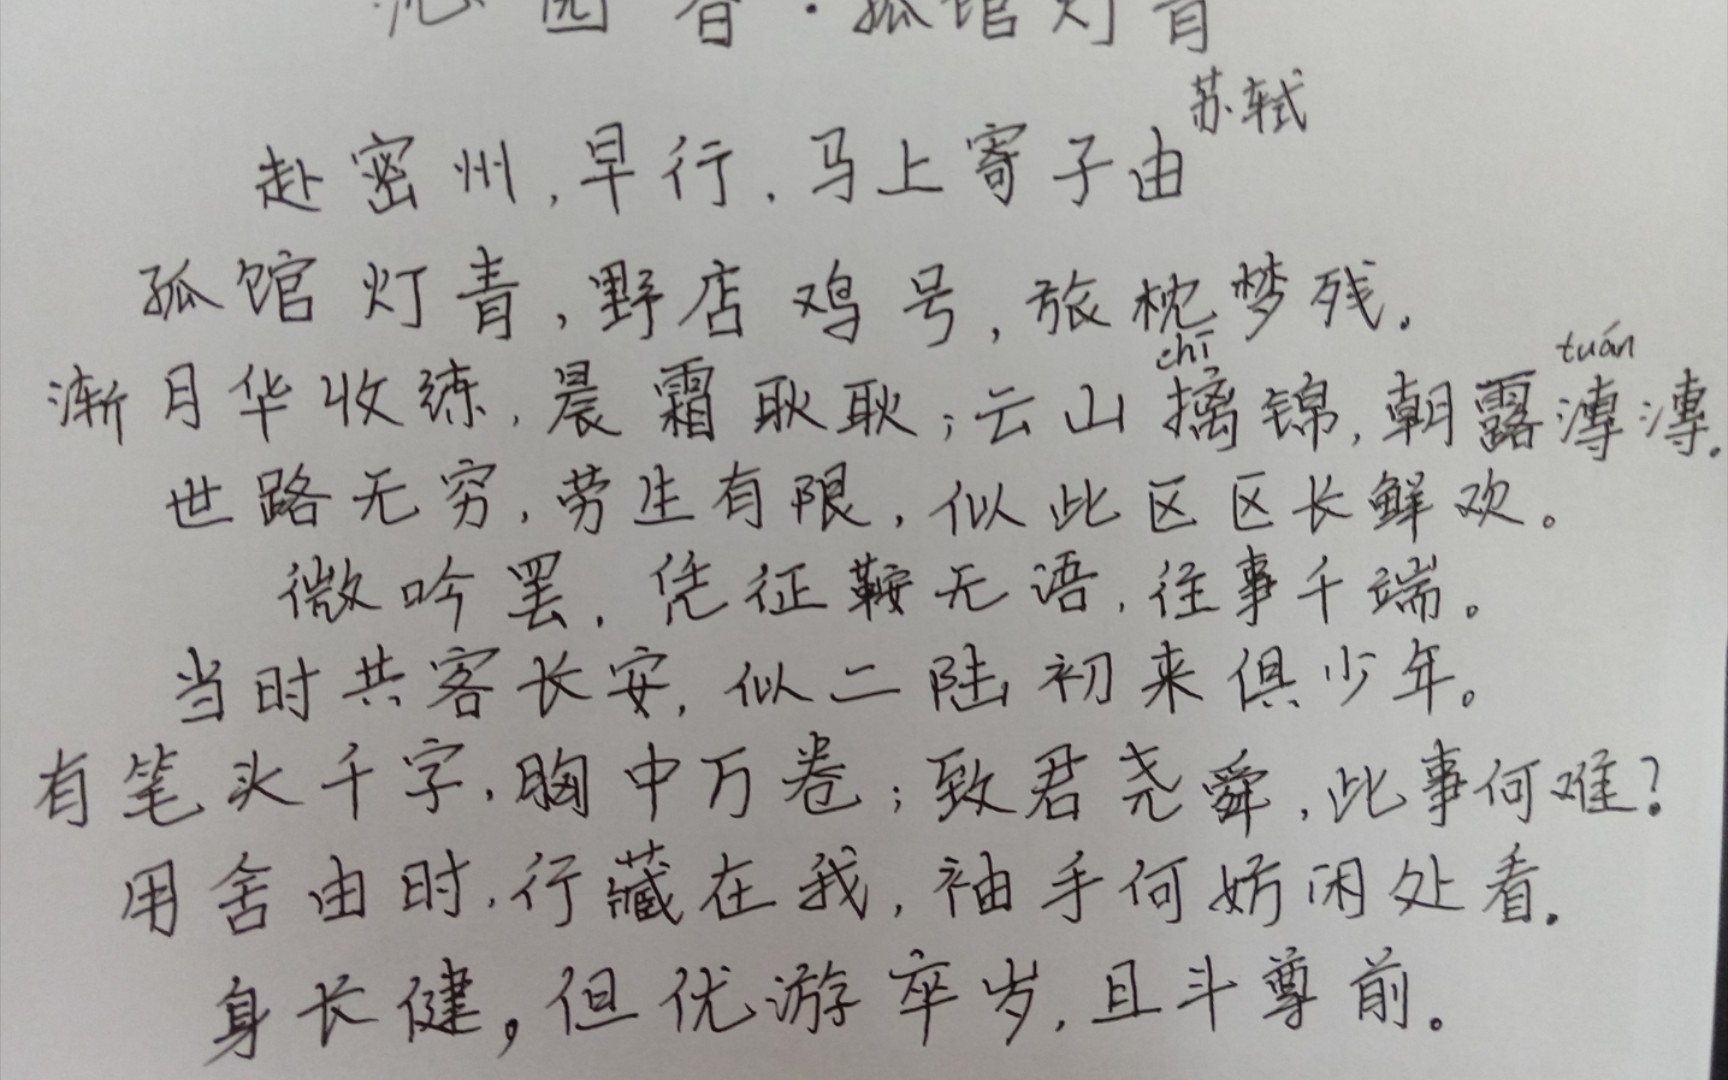 沁园春·孤馆灯青
苏轼
赴密州,早行,马上寄子由
孤馆灯青,野店鸡号,旅枕梦残.
chī tuán
渐月华收练,晨霜耿耿;云山摛锦,朝露漙漙.
世路无穷,劳生有限,似此区区长鲜欢。
微吟罢,凭征鞍无语,往事千端。
当时共客长安,似二陆初来俱少年。
有笔头千字,胸中万卷;致君尧舜,此事何难?
用舍由时,行藏在我,袖手何妨闲处看.
身长健,但优游卒岁,且斗尊前。